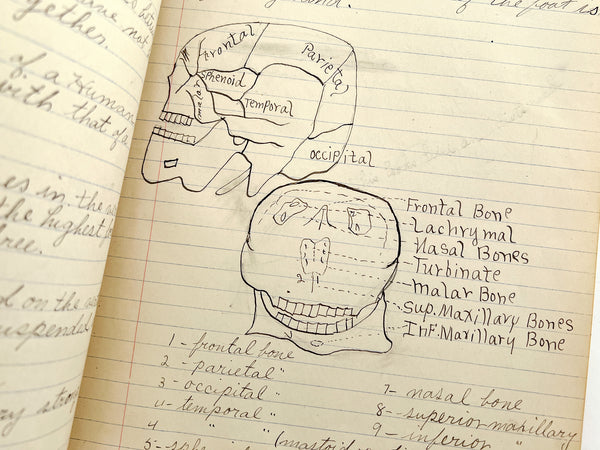 gether.
of a Human
with that of a
es in the
the highest
free.
d on the
suspended
ry strong
of the foot is
Frontal
Parietal
Sphenoid
malar
Temporal
Occipital
Frontal Bone
Lachrymal
Nasal Bones
Turbinate
Malar Bone
Sup. Maxillary Bones
Inf. Maxillary Bone
2 1
1 - frontal bone
2 - parietal "
3 - occipital "
4 - temporal "
4 " (mastoid
5 -
7 - nasal bone
8 - superior maxillary
9 - inferior "